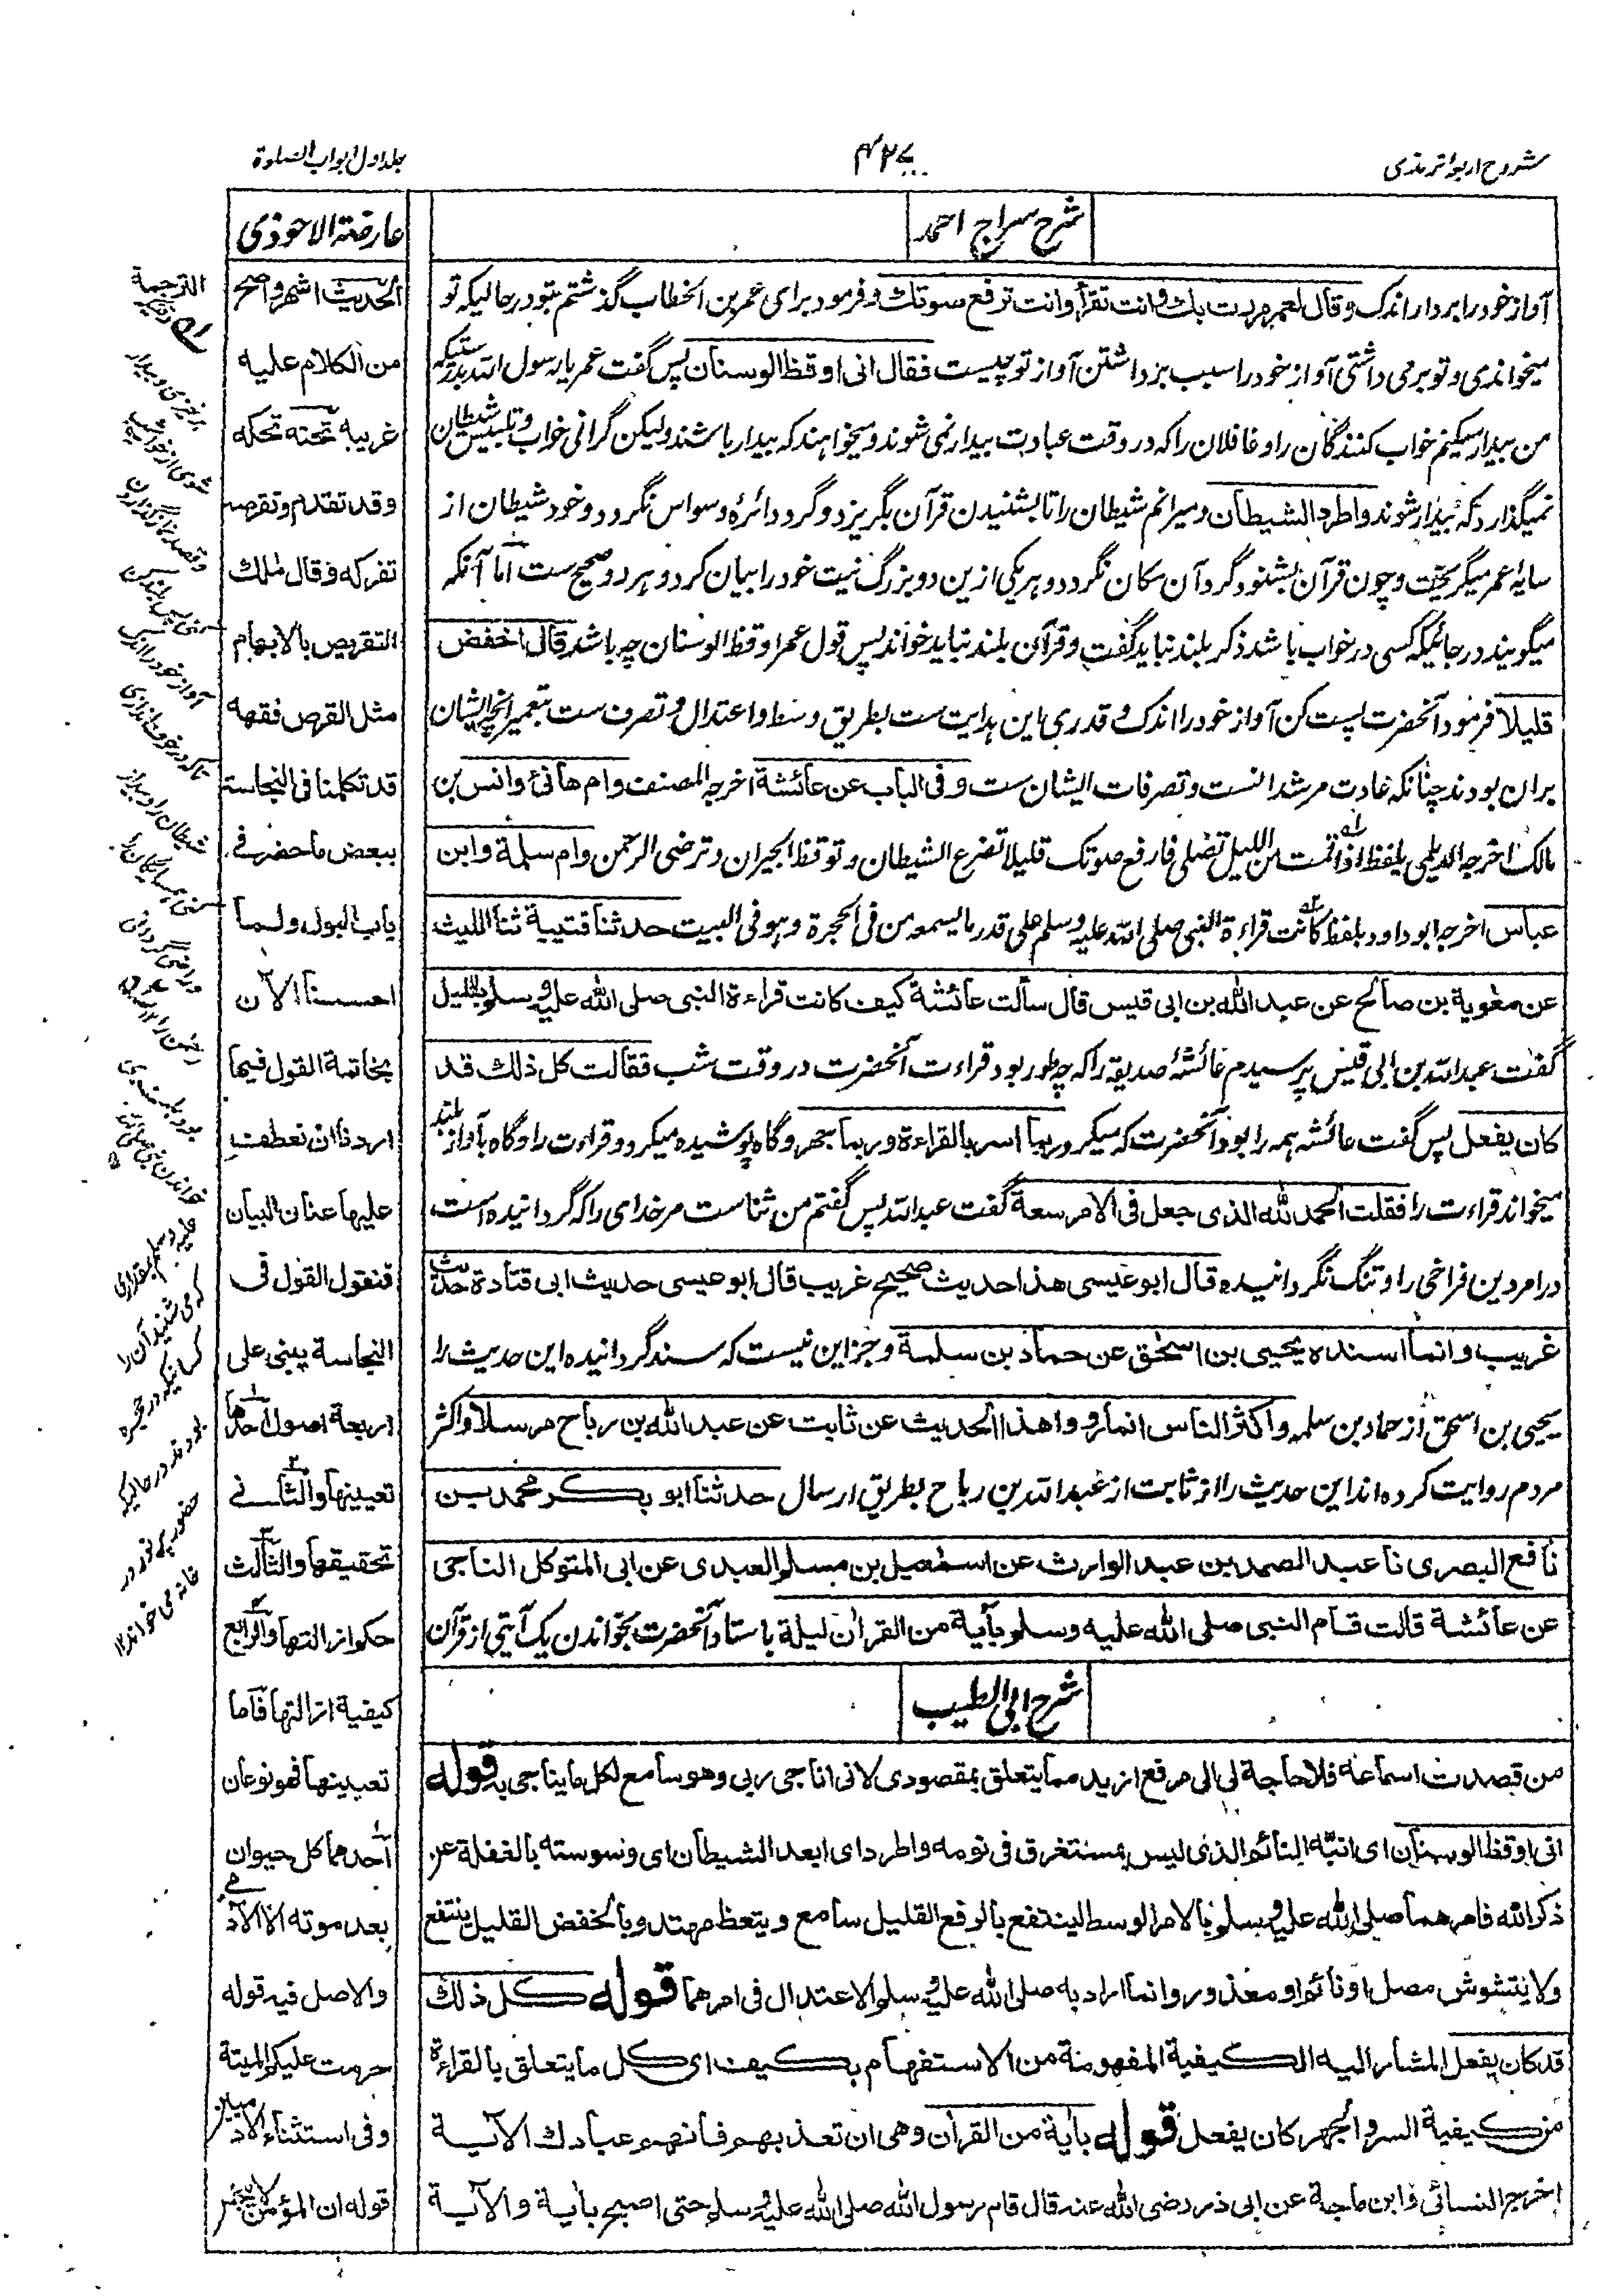 شروح اربعه ترمذی
۴۲۷
جلد اول ابواب الصلوة
شرح سراج احمد
آواز خود را بردار اندک وقال لعمر مررت بك وانت تقرأ وانت ترفع صوتك وفرمود برای عمر بن الخطاب گذشتم بتو درحالیکه تو
میخواندی وتو برمی داشتی آواز خود را سبب برداشتن آواز تو چیست فقال انی اوقظ الوسنان پس گفت عمر یا رسول الله بدرستیکه
من بیدار میکنم خواب کنندگان را وغافلان را که در وقت عبادت بیدار نمی شوند ومیخواهند که بیدار باشند ولیکن گرانی خواب وتلبیس شیطان
نمیگذارد که بیدار شوند واطرد الشیطان ومیرانم شیطان را تا بشنیدن قرآن بگریزد وگرد دائرۀ وسواس نگردد وخود شیطان از
سایۀ عمر میگریخت وچون قرآن بشنود گرد آن مکان نگردد وهر یکی ازین دو بزرگ نیت خود را بیان کرد وهر دو صحیح ست اما آنکه
میگویند در جائیکه کسی در خواب باشد ذکر بلند نباید گفت وقرآن بلند نباید خواند پس قول عمر اوقظ الوسنان چه باشد قال اخفض
قلیلا فرمود آنحضرت پست کن آواز خود را اندک وقدری این هدایت ست بطریق وسط واعتدال وتصرف ست بتغییر انچه ایشان
بران بودند چنانکه عادت مرشد انست وتصرفات ایشان ست وفی الباب عن عائشة اخرجه المصنف وام هانئ وانس بن
مالک اخرجه الدیلمی بلفظ اذا قمت من اللیل تصلی فارفع صوتک قلیلا تفزع الشیطان وتوقظ الجیران وترضی الرحمن وام سلمة وابن
عباس اخرجه ابو داود بلفظ کانت قراءة النبی صلی الله علیه وسلم علی قدر ما یسمعه من فی الحجرة وهو فی البیت حدثنا قتیبة ثنا اللیث
عن معویة بن صالح عن عبد الله بن ابی قیس قال سألت عائشة کیف کانت قراءة النبی صلی الله علیه وسلم باللیل
گفت عبد الله بن ابی قیس پرسیدم عائشۀ صدیقه را که چطور بود قراءت آنحضرت در وقت شب فقالت کل ذلك قد
کان یفعل پس گفت عائشه همه را بود آنحضرت که میکرد ربما اسر بالقراءة وربما جهر وگاه پوشیده میکرد وقراءت را وگاه بآواز بلند
میخواند قراءت را فقلت الحمد لله الذی جعل فی الامر سعة گفت عبد الله پس گفتم من ثناست مر خدای را که گردانیده است
در امر دین فراخی را وتنگ نگردانیده قال ابو عیسی هذا حدیث صحیح غریب قال ابو عیسی حدیث ابی قتادة حدیث
غریب وانما اسنده یحیی بن اسحق عن حماد بن سلمة وجز این نیست که مسند گردانیده این حدیث را
یحیی بن اسحق از حماد بن سلمه واکثر الناس انما رووا هذا الحدیث عن ثابت عن عبد الله بن رباح مرسلا واکثر
مردم روایت کرده اند این حدیث را از ثابت از عبد الله بن رباح بطریق ارسال حدثنا ابو بکر محمد بن
نافع البصری نا عبد الصمد بن عبد الوارث عن اسمعیل بن مسلم العبدی عن ابی المتوکل الناجی
عن عائشة قالت قام النبی صلی الله علیه وسلم بآیة من القران لیلة باستاد آنحضرت بخواندن یک آیتی از قرآن
شرح ابی الطیب
من قصدت اسماعه فلا حاجة لی الی رفع ازید مما یتعلق بمقصودی لانی اناجی ربی وهو سامع لکل ما یناجی به قوله
انی اوقظ الوسنان ای انبّه النائم الذی لیس بمستغرق فی نومه واطرد ای ابعد الشیطان ای وسوسته بالغفلة عن
ذکر الله فامرهما صلی الله علیه وسلم بالامر الوسط لینتفع بالرفع القلیل سامع ویتعظ مهتد وبالخفض القلیل ینتفع
ولا یتشوش مصل او نائم او معذور وانما اراد به صلی الله علیه وسلم الاعتدال فی امرهما قوله کل ذلك
قد کان یفعل المشار الیه الکیفیة المفهومة من الاستفهام بکیف ای کل ما یتعلق بالقراءة
من کیفیة السر والجهر کان یفعل قوله بآیة من القرآن وهی ان تعذبهم فانهم عبادك الآیة
اخرجه النسائی وابن ماجة عن ابی ذر رضی الله عنه قال قام رسول الله صلی الله علیه وسلم حتی اصبح بآیة والآیة
عارضة الاحوذی
الحدیث اشهر واصح
من الکلام علیه
غریبه تحته تحکه
وقد تقدم وتقرصه
تفرکه وقال ملك
التقریص بالابهام
مثل القرص فقهه
قد تکلمنا فی النجاسة
ببعض ما حضر فی
باب البول ولما
احسسنا الآن
بخاتمة القول فیها
اردنا ان نعطف
علیها عنان البیان
فنقول القول فی
النجاسة یبنی علی
اربعة اصول احدها
تعیینها والثانی
تحقیقها والثالث
حکم ازالتها والرابع
کیفیة ازالتها فاما
تعیینها فهو نوعان
احدهما کل حیوان
بعد موته الا الآدمی
والاصل فیه قوله
حرمت علیکم المیتة
وفی استثناء الآدمی
قوله ان المؤمن لا ینجس
الترجمة
برخیزی
وقصد نماز گزاردن
آواز خود را اندک
شیطان را وبیدار
رحمن را
خواندن نبی صلی الله
علیه وسلم بمقداری
که می شنید آن را
کسانیکه در حجره
بودند درحالیکه
حضور پر نور در
خانه می خواند ۱۲